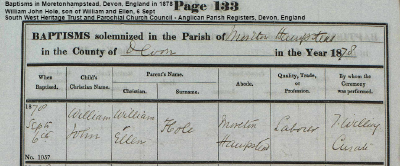 Baptisms in Moretonhampstead, Devon, England in 1878
William John Hole, son of William and Ellen, 6 Sept
South West Heritage Trust and Parochial Church Council - Anglican Parish Registers, Devon, England
Page 133
BAPTISMS solemnized in the Parish of Moreton Hampstead
in the County of Devon in the Year 1878.
When Baptized. Child's Christian Name. Parent's Name. Christian. Surname. Abode. Quality, Trade, or Profession. By whom the Ceremony was performed.
1878 Sept 6th
William John
William Ellen
Hole
Moreton Hampstead
Labourer
Curate
No. 1057